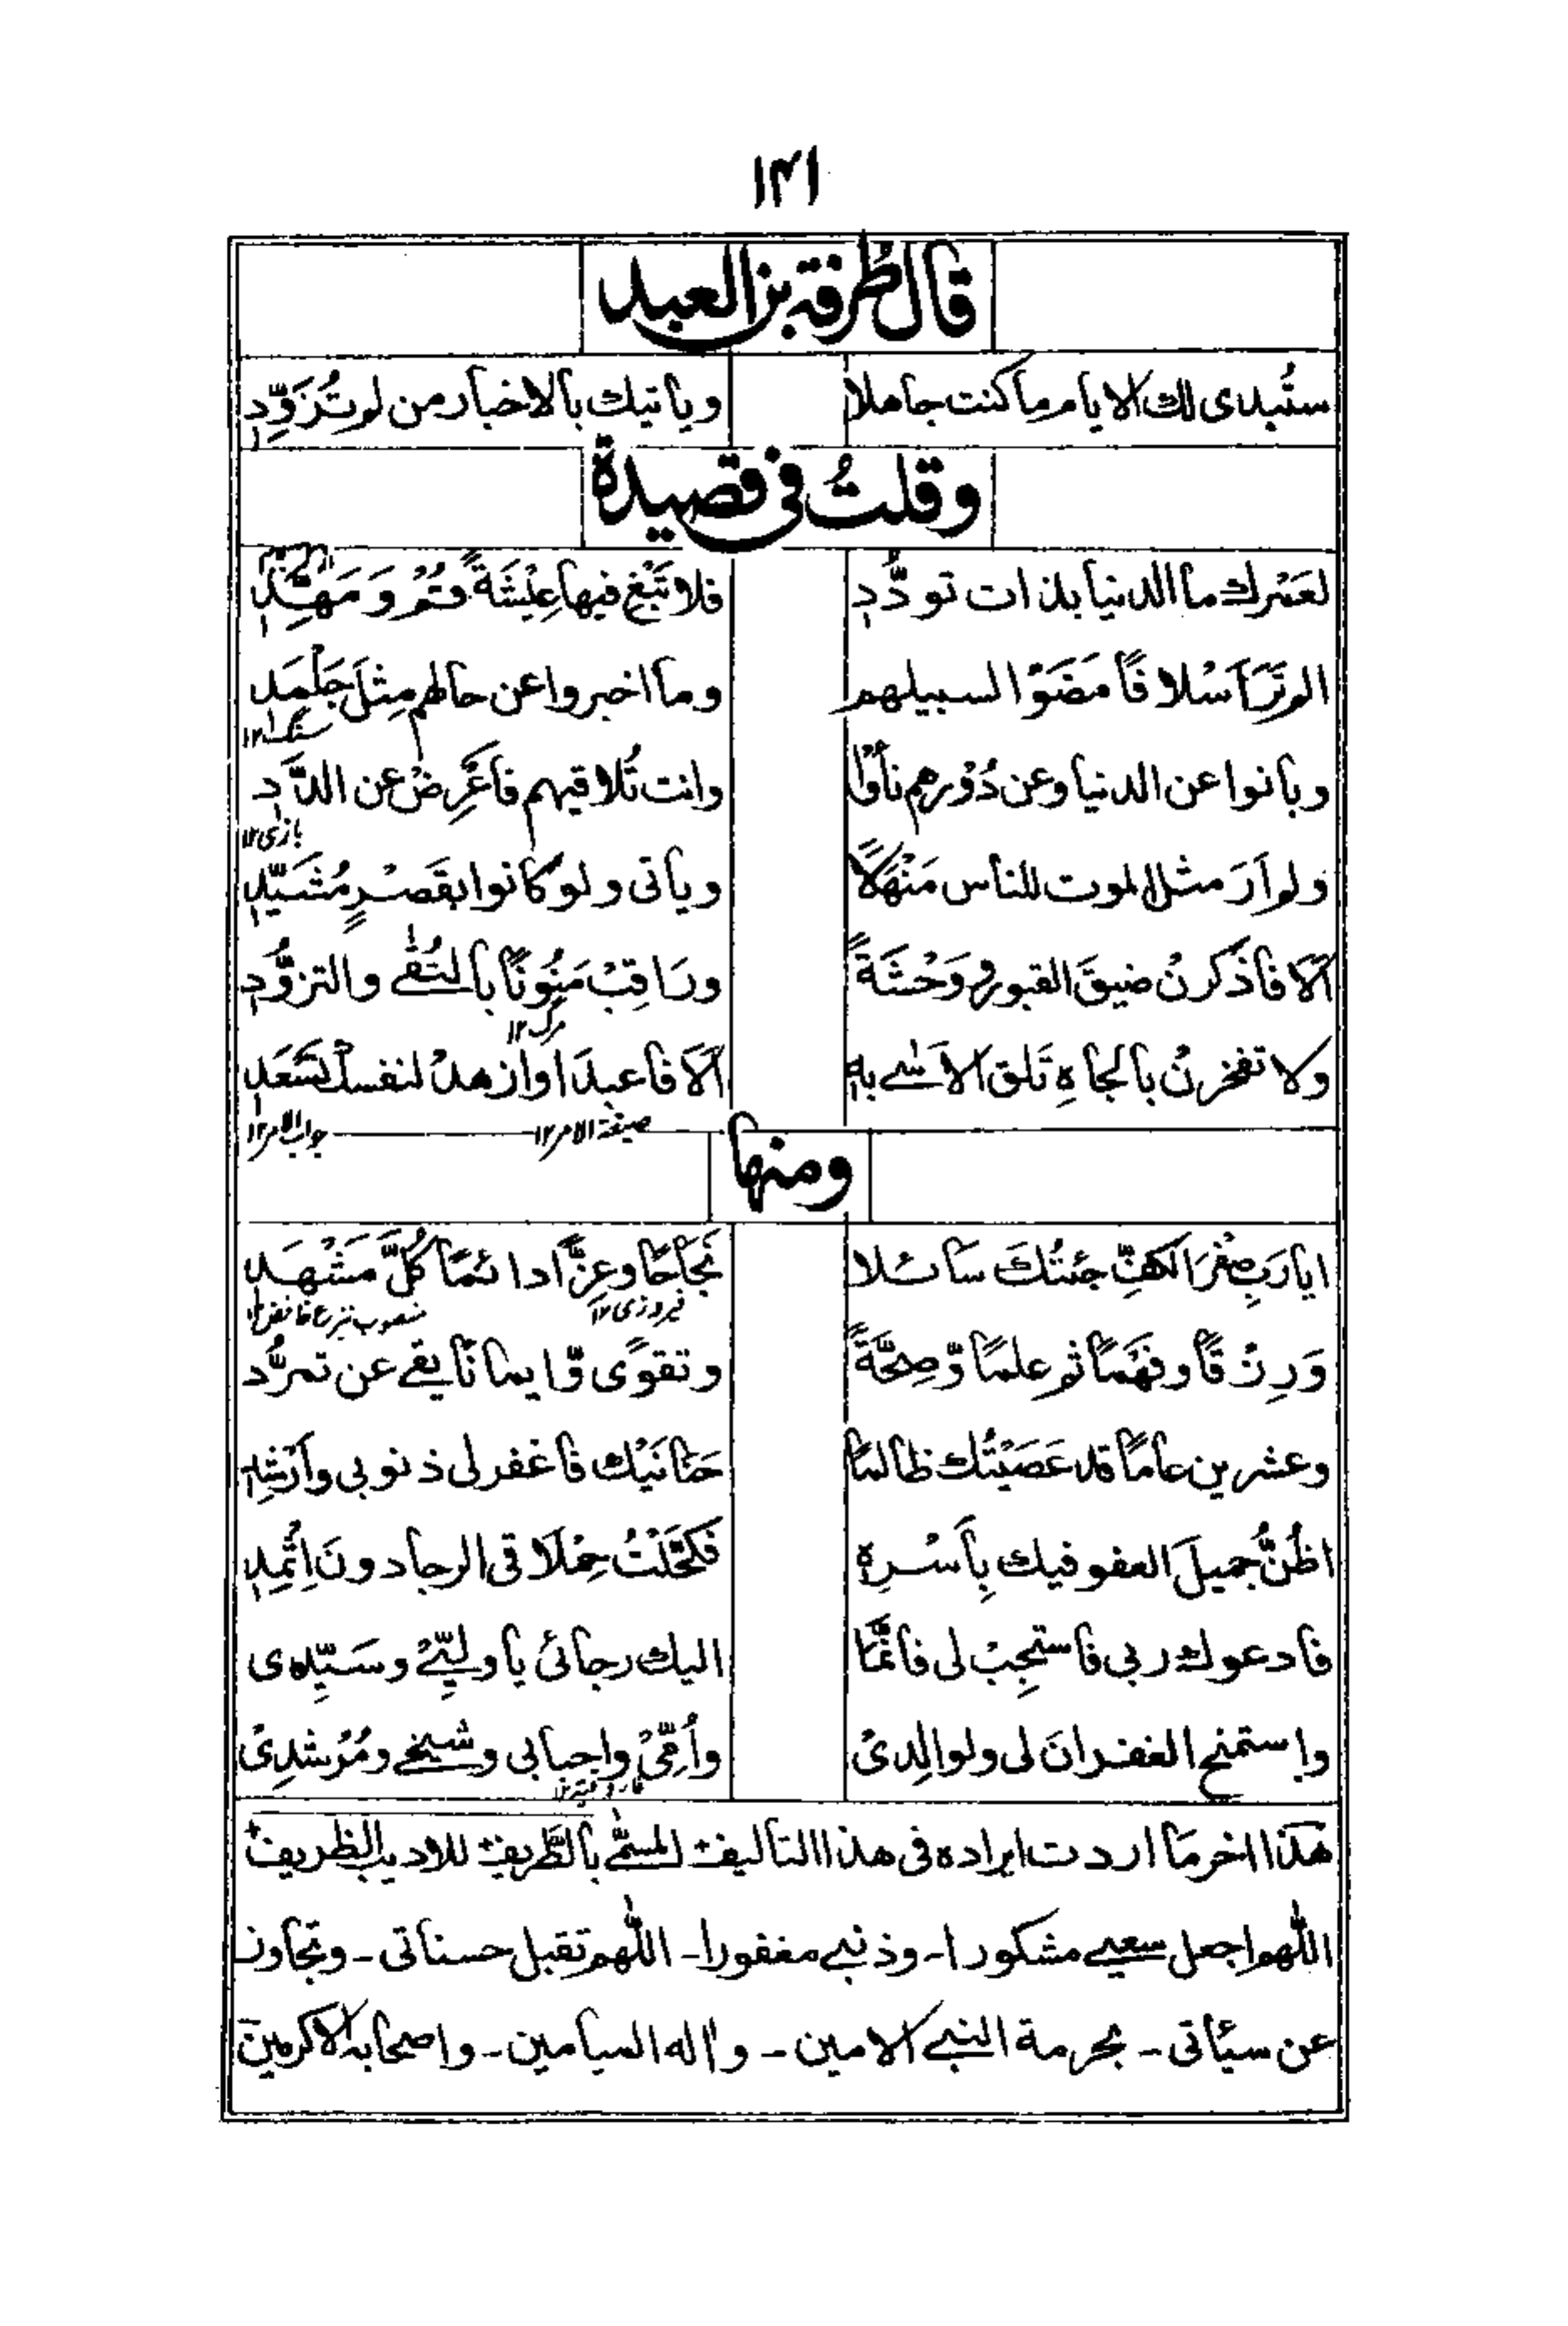 ١٤١
قال طرفة بن العبد
ستُبدى لك الايام ما كنت جاهلا وياتيك بالاخبار من لم تُزَوِّدِ
وقلتُ فى قصيدة
لعَمْرك ما الدنيا بذات تودُّدِ فلا تَبْغِ فيها عِيْشَةً قُمْ وَمَهِّدِ
الم تَرَ اَسْلافًا مَضَوْا لسبيلهم وما اخبروا عن حالهم مِثلَ جَلْمَدِ
سنگ ١٢
وبانوا عن الدنيا وعن دُوْرهم نأَوْا وانت تُلاقيهم فاَعْرِضْ عن الدَّدِ
بازى ١٢
ولم اَرَ مثل الموت للناس مَنْهَلًا وياتى ولو كانوا بقَصْرٍ مُشَيَّدِ
اَلا فاذكرنْ ضيقَ القبور ووَحْشَةً ورَاقِبْ مَنُوْنًا بالتُقٰى والتزوُّدِ
مرگ ١٢
ولا تفخرنْ بالجاهِ تَلق الاَسٰى بهِ اَلَا فاعبدَا وازهدْ لنفسك تَسْعَدِ
صيغة الامر ١٢ جواب الامر ١٢
ومنها
ايا ربِ صِفْرَ الكفِّ جئتُكَ سائلا نَجَاحًا وعِزًّا دائمًا كُلَّ مَشْهَدِ
فيروزى ١٢ منصوب بنزع خافض ١٢
وَرِزْقًا وفَهْمًا ثم علمًا وّصِحَّةً وتقوًى وّايمانًا يقى عن تمرُّد
وعشرين عامًا قد عَصَيْتُك ظالمًا حَنانَيْك فاغفر لى ذنوبى وارْشِدِ
اظُنُّ جميلَ العفو فيك بِاَسْرِهٖ فكَحَّلْتُ حِمْلَاقى الرجا دونَ اِثْمِدِ
فادعوك ربى فاستجِبْ لى فانَّما اليك رجائى يا وليِّىْ وسَيِّدى
واستمنح الغفرانَ لى ولوالِدىْ واُمِّىْ واحبابى وشيخى ومُرْشدِىْ
هٰذا اخر ما اردت ايراده فى هذا التاليف المسمّٰى بالطَّريف للاديب الظريف
اللّٰهم اجعل سعيى مشكورا - وذنبى مغفورا - اللّٰهم تقبل حسناتى - وتجاوز
عن سيّاتى - بحرمة النبى الامين - واٰله الميامين - واصحابه الاكرمين